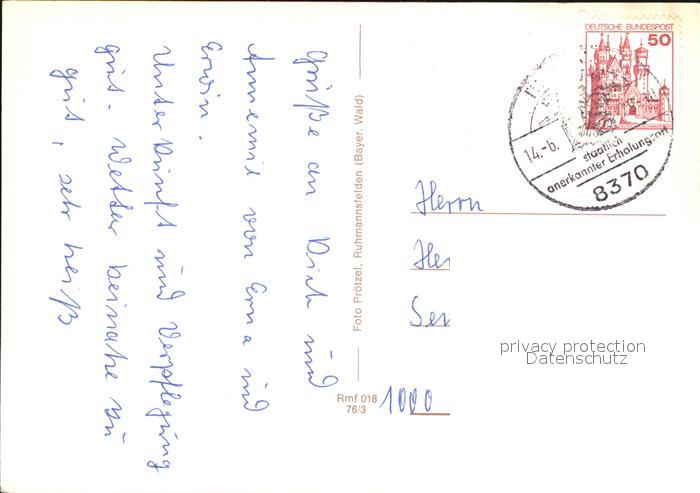 Grüße an Dich und
Annemie von Erna und
Erwin.
Unterkunft und Verpflegung
gut. Wetter beinahe zu
gut, sehr heiß
Foto Prötzel, Ruhmannsfelden (Bayer. Wald)
Rmf 018
76/3
DEUTSCHE BUNDESPOST
50
14.-6.
staatlich
anerkannter Erholungsort
8370
Herrn
privacy protection
Datenschutz
1000